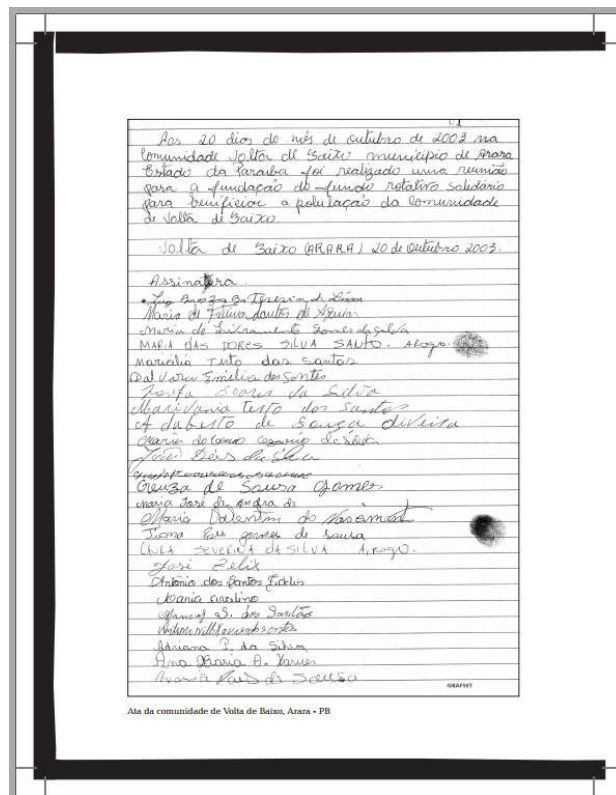 Aos 20 dias do mês de outubro de 2003 na
Comunidade Volta de Baixo município de Arara
Estado da Paraíba foi realizado uma reunião
para a fundação do fundo rotativo solidário
para benificior a população da comunidade
de Volta de Baixo
Volta de Baixo (ARARA) 20 de outubro 2003.
Assinatura
Teresa de Lima
Maria de Fatima Santos de Aguiar
Maria do Livramento Gomes da Silva
MARIA DAS DORES SILVA SANTO. A ROGO.
Maricélia Teto dos Santos
Emilia dos Santos
Josefa Soares da Silva
Marivania teto dos Santos
Adaberto de Souza oliveira
Maria do Carmo
da Silva
Creuza de Sousa Gomes
Maria José de Andra de
Maria Valentim do Nascimento
gomes de Sousa
SEVERINA DA SILVA A ROGO.
José Felix
Antônio dos Santos Fidelis
Maria
S. dos Santos
Adriana P. da Silva
Ana Maria A. Xavier
Maria Pais de Sousa
GRAFSET
Ata da comunidade de Volta de Baixo, Arara - PB